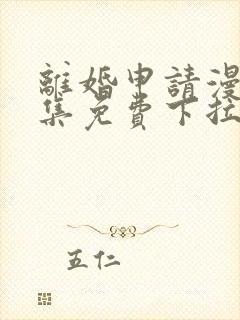 離婚申請漫
集免費下拉
五仁